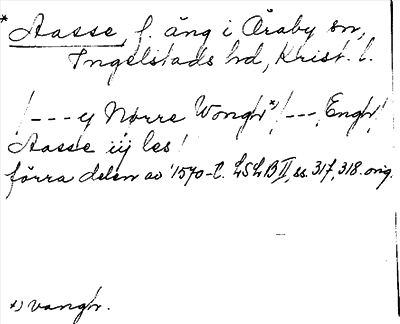 * Aasse, f. äng i Öraby sn,
Ingelstads hd, Krist. l.
/--- y Nørre Wongh*) /--- Engh/
Aasse iij les /
förra delen av 1570-t. LSLB II, ss. 317, 318. orig.
*) vangh.